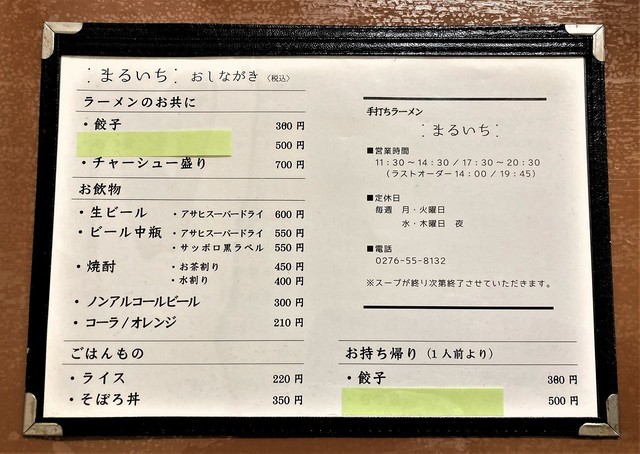 まるいち おしながき〈税込〉
ラーメンのお共に
・餃子 300 円
500 円
・チャーシュー盛り 700 円
お飲物
・生ビール ・アサヒスーパードライ 600 円
・ビール中瓶 ・アサヒスーパードライ 550 円
・サッポロ黒ラベル 550 円
・焼酎 ・お茶割り 450 円
・水割り 400 円
・ノンアルコールビール 300 円
・コーラ/オレンジ 210 円
ごはんもの
・ライス 220 円
・そぼろ丼 350 円
手打ちラーメン
まるいち
■営業時間
11:30~14:30/17:30~20:30
(ラストオーダー14:00/19:45)
■定休日
毎週 月・火曜日
水・木曜日 夜
■電話
0276-55-8132
※スープが終り次第終了させていただきます。
お持ち帰り(1人前より)
・餃子 300 円
500 円